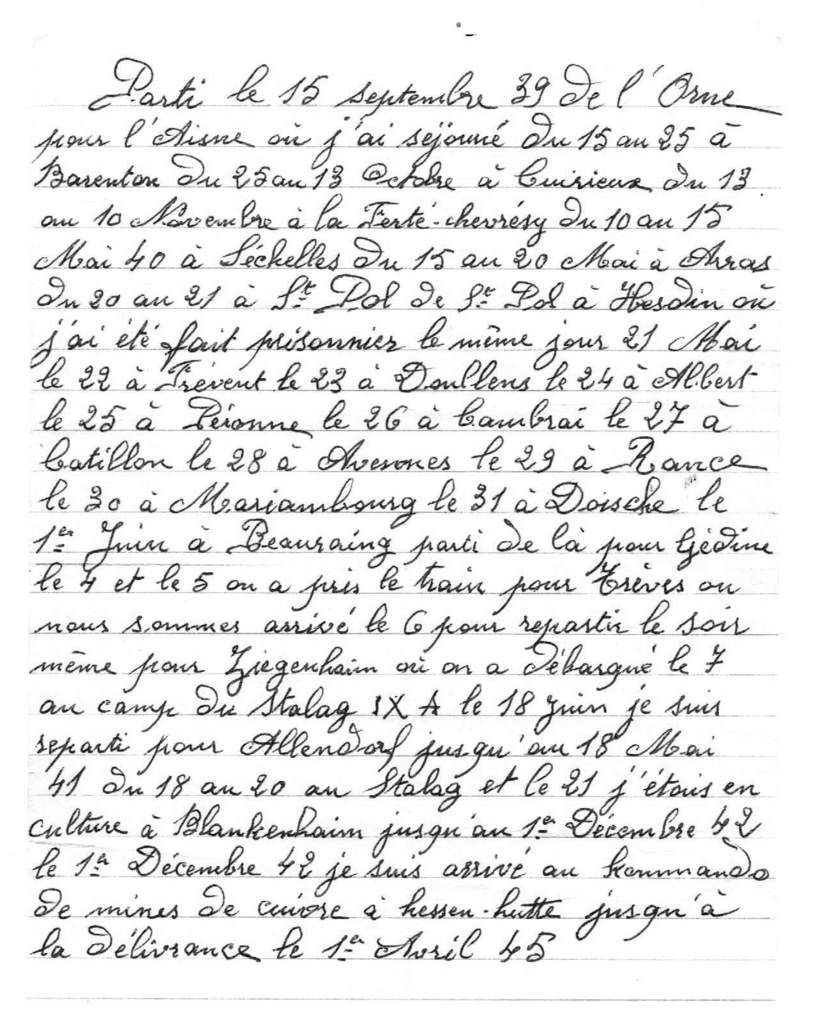 Parti le 15 septembre 39 de l'Orne
pour l'Aisne où j'ai séjourné du 15 au 25 à
Barenton du 25 au 13 Octobre à Cuirieux du 13
au 10 Novembre à la Ferté-chevrésy du 10 au 15
Mai 40 à Séchelles du 15 au 20 Mai à Arras
du 20 au 21 à St Pol de St Pol à Hesdin où
j'ai été fait prisonnier le même jour 21 Mai
le 22 à Frévent le 23 à Doullens le 24 à Albert
le 25 à Péronne le 26 à Cambrai le 27 à
Catillon le 28 à Avesnes le 29 à Rance
le 30 à Mariambourg le 31 à Doische le
1er Juin à Beauraing parti de là pour Gédine
le 4 et le 5 on a pris le train pour Trèves ou
nous sommes arrivé le 6 pour repartir le soir
même pour Ziegenhaim où on a débarqué le 7
au camp du Stalag IX A le 18 Juin je suis
reparti pour Allendorf jusqu'au 18 Mai
41 du 18 au 20 au Stalag et le 21 j'étais en
culture à Blankenhaim jusqu'au 1er Décembre 42
le 1er Décembre 42 je suis arrivé au kommando
de mines de cuivre à hessen-hutte jusqu'à
la délivrance le 1er Avril 45